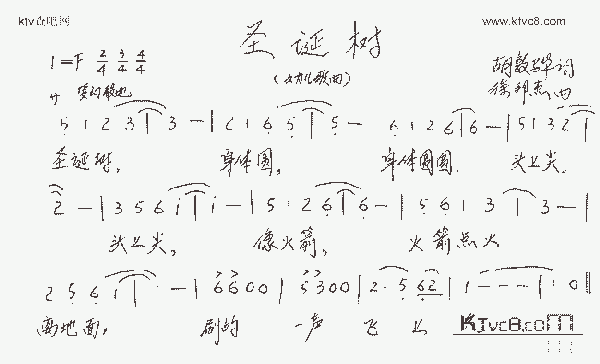 ktv俱吧网
www.ktvc8.com
圣诞树
(少儿歌曲)
1=F 2/4 3/4 4/4
胡敦骅 词
徐邦杰 曲
5 1 2 3 3 — | 2 1 6 5 5 — 6 1 2 6 6 — | 5 1 3 2
圣诞树, 身体圆, 身体圆圆. 头上尖
2 — | 3 5 6 i i — | 5 1 2 6 6 — | 5 6 1 3 3 — |
头上尖, 像火箭, 火箭点火
2 5 6 1 — | 6 6 0 0 | 5 3 0 0 | 2 · 5 6 2 | 1 - - - 1 0 ‖
离地面, 剧的 一声 飞 上
KTvc8.com